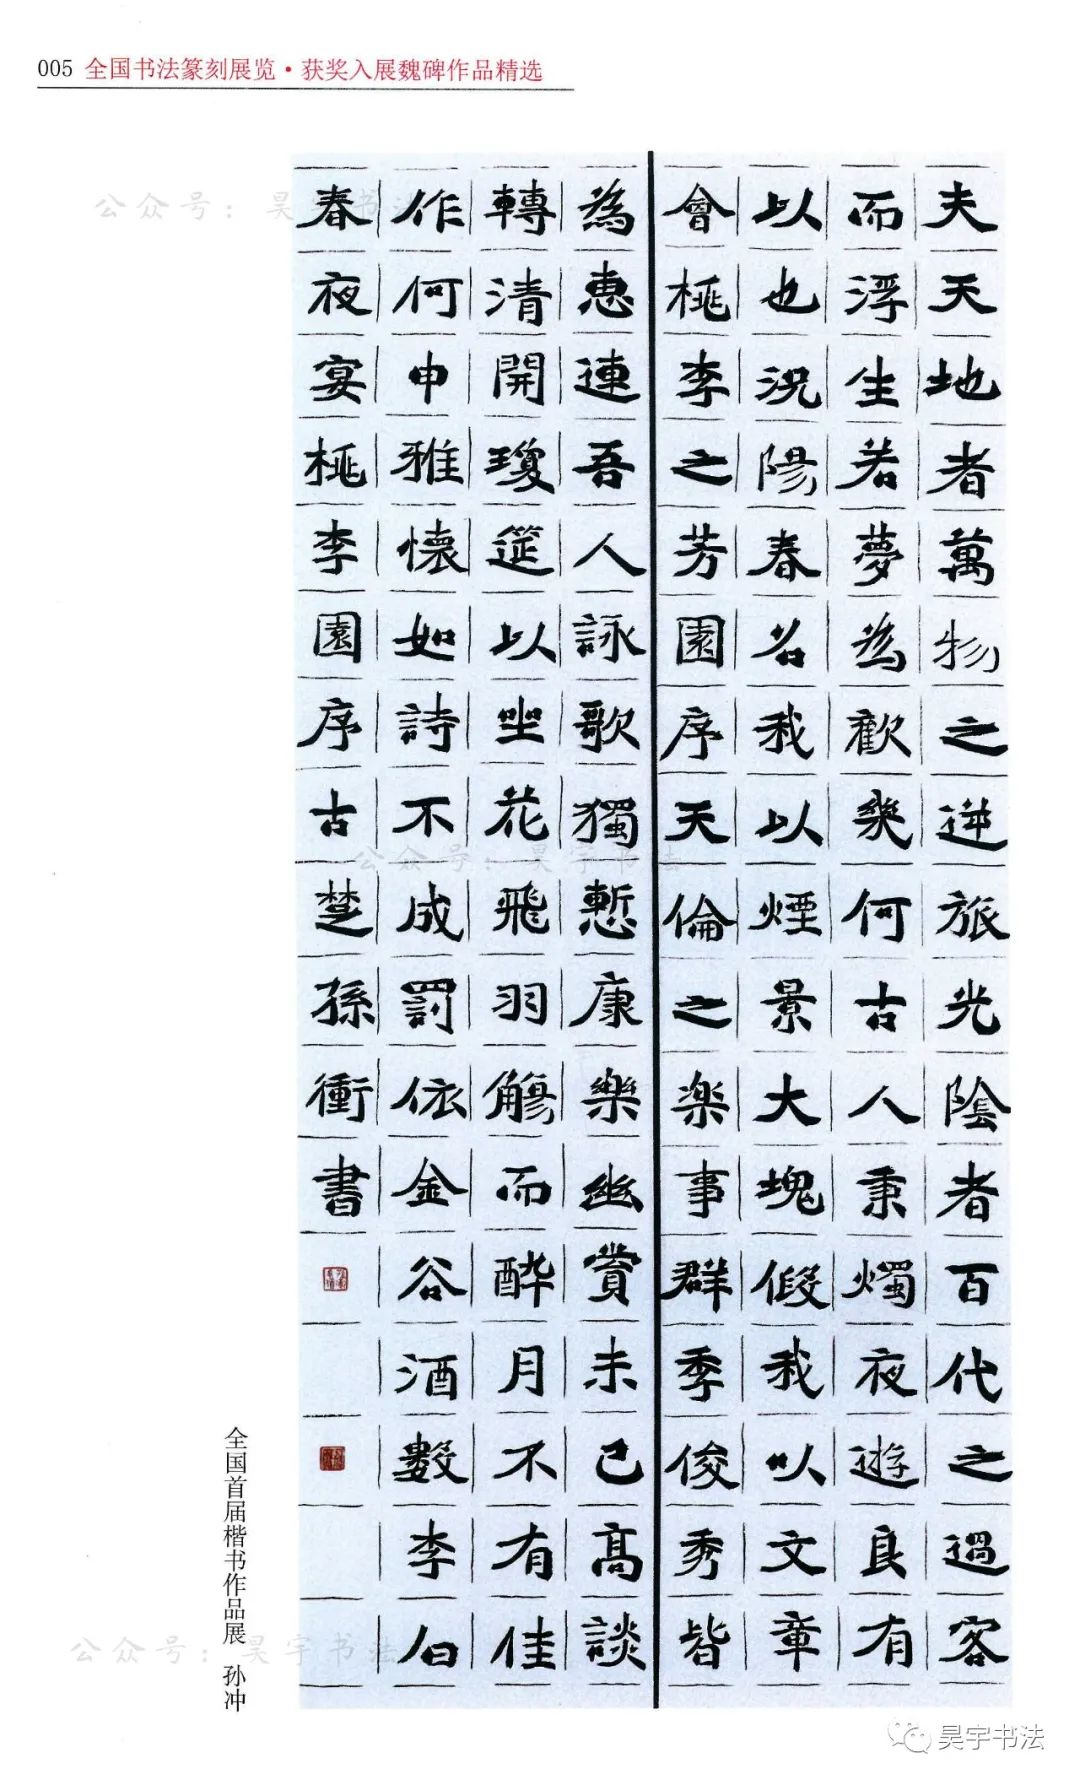 005 全国书法篆刻展览·获奖入展魏碑作品精选
夫天地者萬物之逆旅光陰者百代之過客
而浮生若夢為歡幾何古人秉燭夜遊良有
以也況陽春名我以煙景大塊假我以文章
會桃李之芳園序天倫之楽事群季俊秀皆
為惠連吾人詠歌獨慙康樂幽賞未已高談
轉清開瓊筵以坐花飛羽觴而醉月不有佳
作何申雅懷如詩不成罰依金谷酒數李白
春夜宴桃李園序古楚孫衝書
全国首届楷书作品展 孙冲
公众号：昊宇书法
公众号：昊宇书法
公众号：昊宇书法
昊宇书法